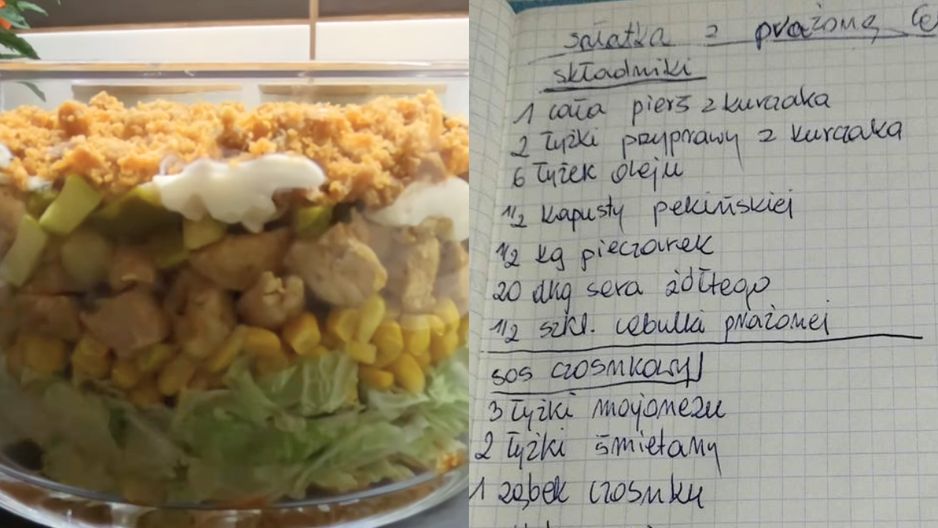 sałatka z prażoną
składniki
1 cała pierś z kurczaka
2 łyżki przyprawy z kurczaka
6 łyżek oleju
1/2 kapusty pekińskiej
1/2 kg pieczarek
20 dkg sera żółtego
1/2 szkl. cebulki prażonej
sos czosnkowy
3 łyżki majonezu
2 łyżki śmietany
1 ząbek czosnku